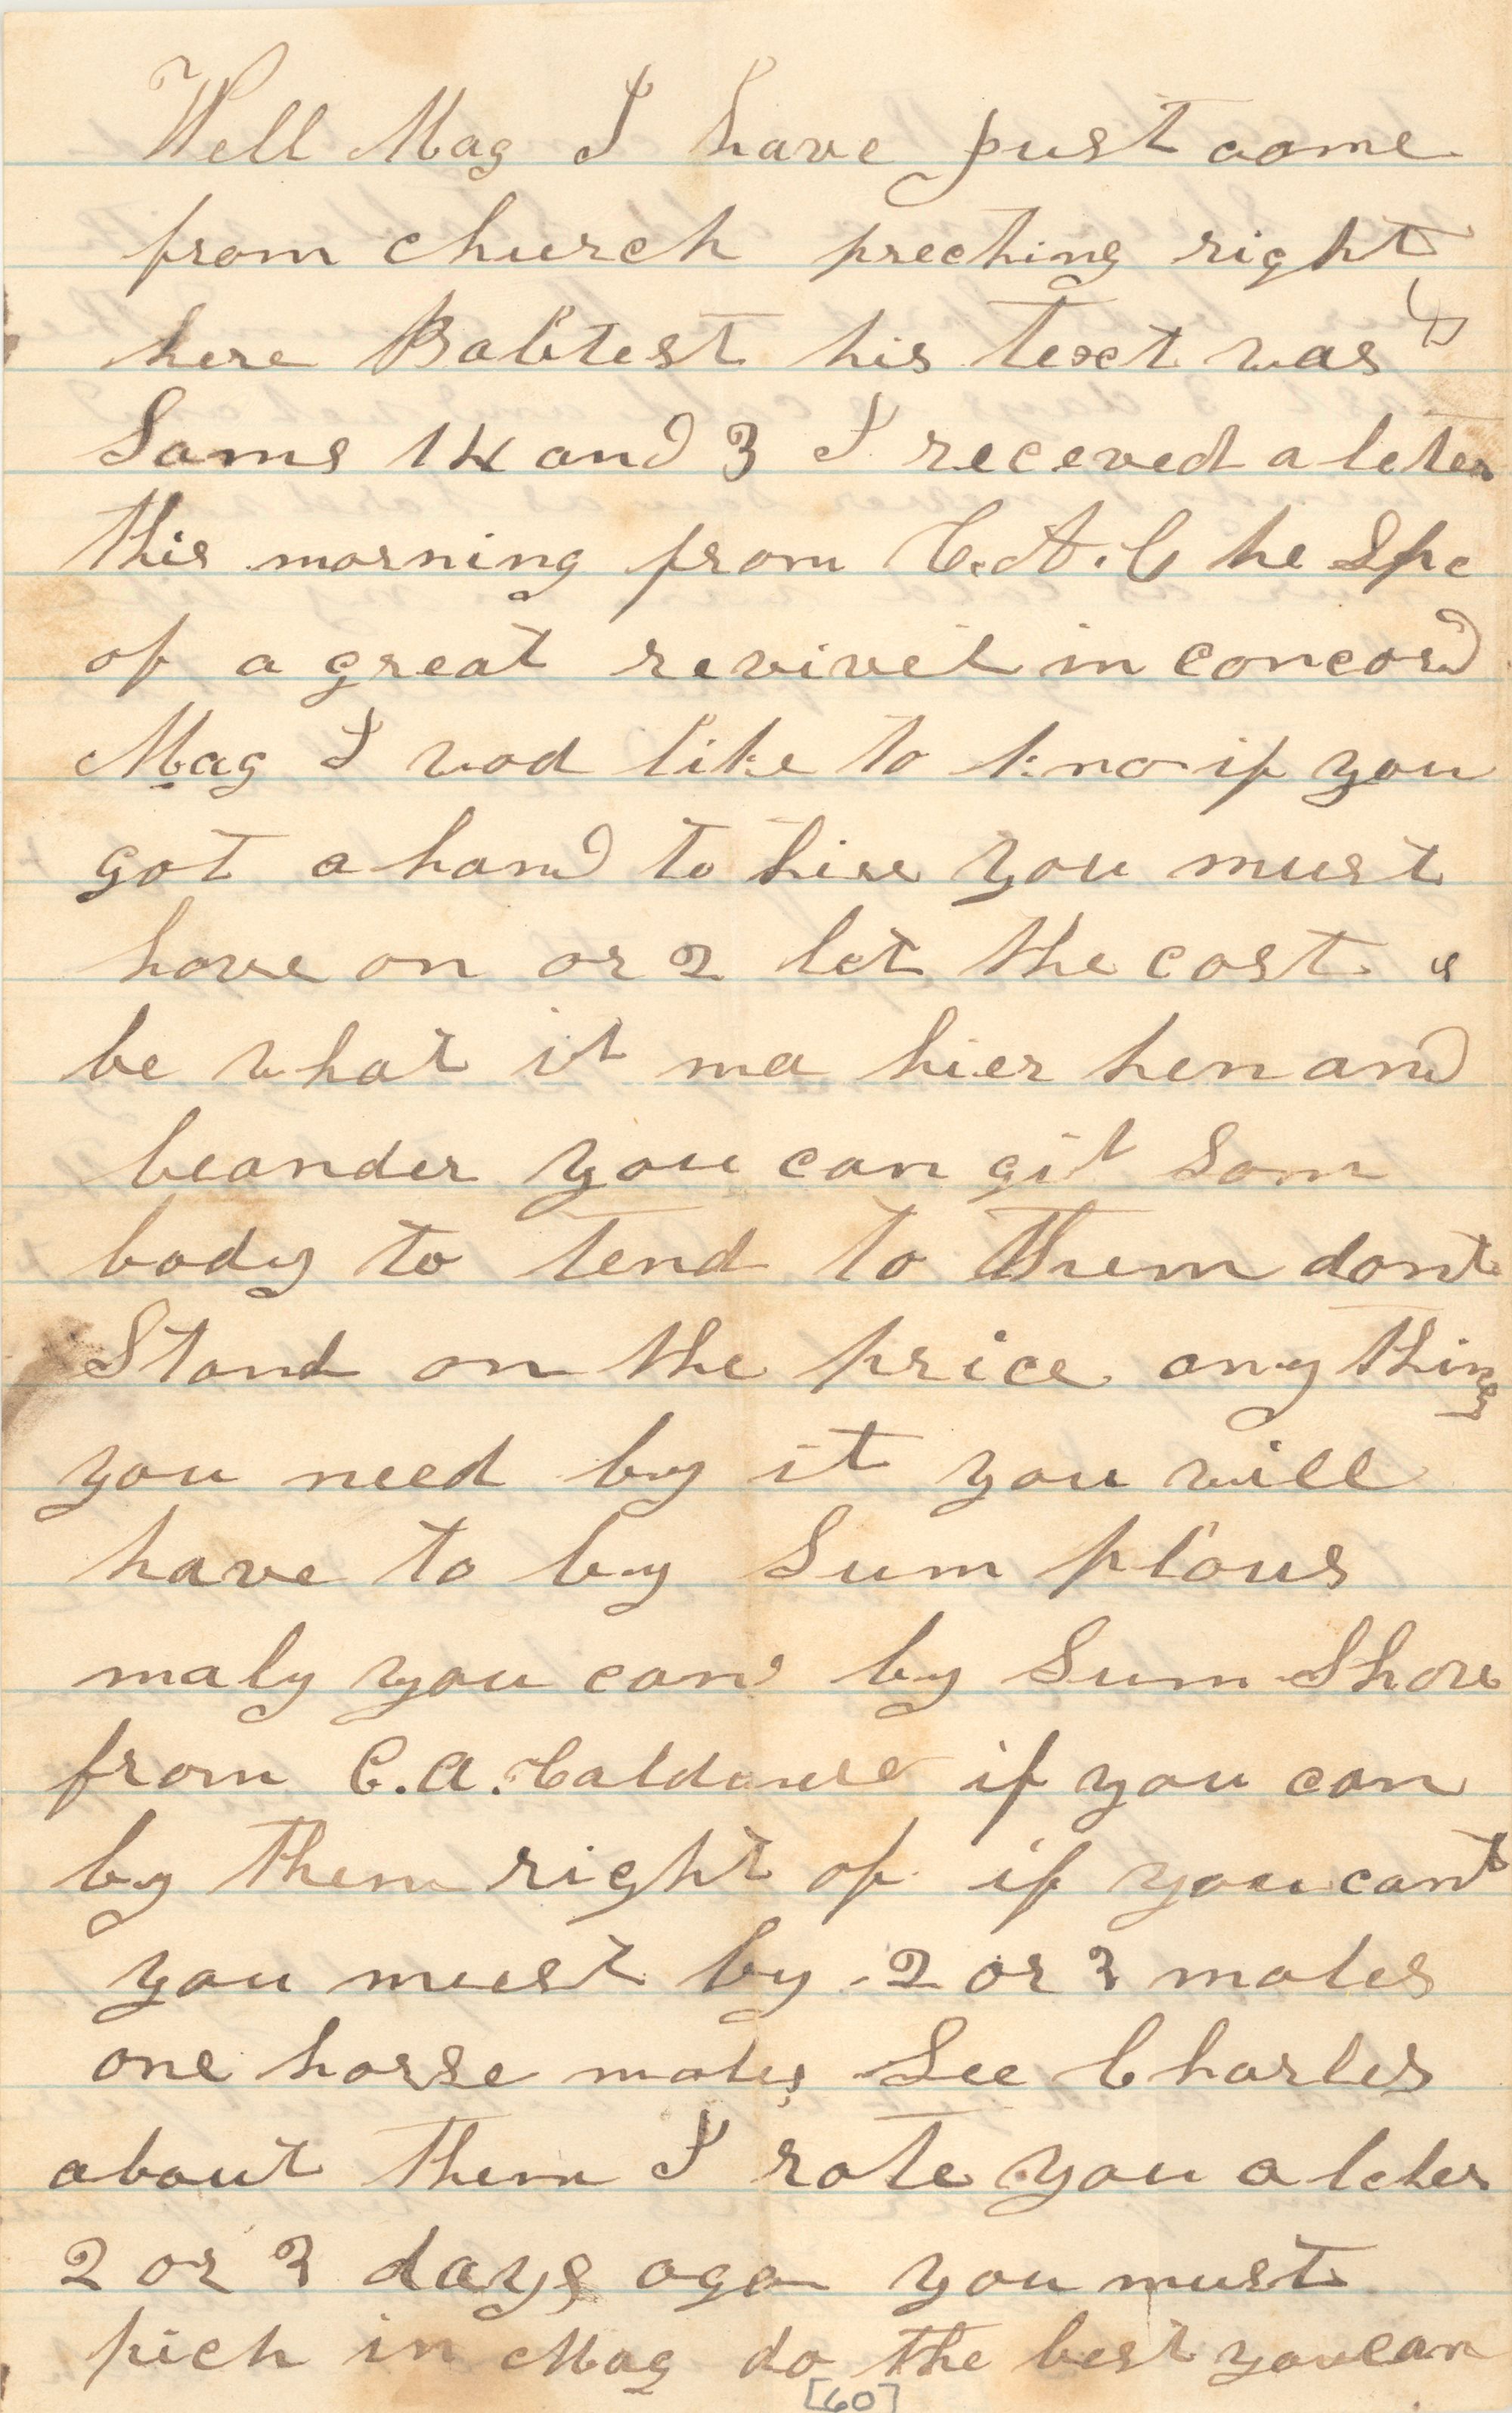 Well Mag I have just come
from church preching right
here Babtest his text was
Sams 14 and 3 I receved a leter
this morning from C. A. C he Spe
of a great revivel in concord
Mag I wod like to kno if you
got a hand to hier you must
have on or 2 let the cost
be what it ma hier hen and
leander you can git Som
body to tend to them dont
Stand on the price any thing
you need by it you will
have to by Sum plous
maby you can by Sum Shore
from C. A. Caldwell if you can
by them right of if you cant
you must by 2 or 3 moles
one horse moles See Charles
about them I rote you a leter
2 or 3 days ago you must
pich in Mag do the best you can
[60]